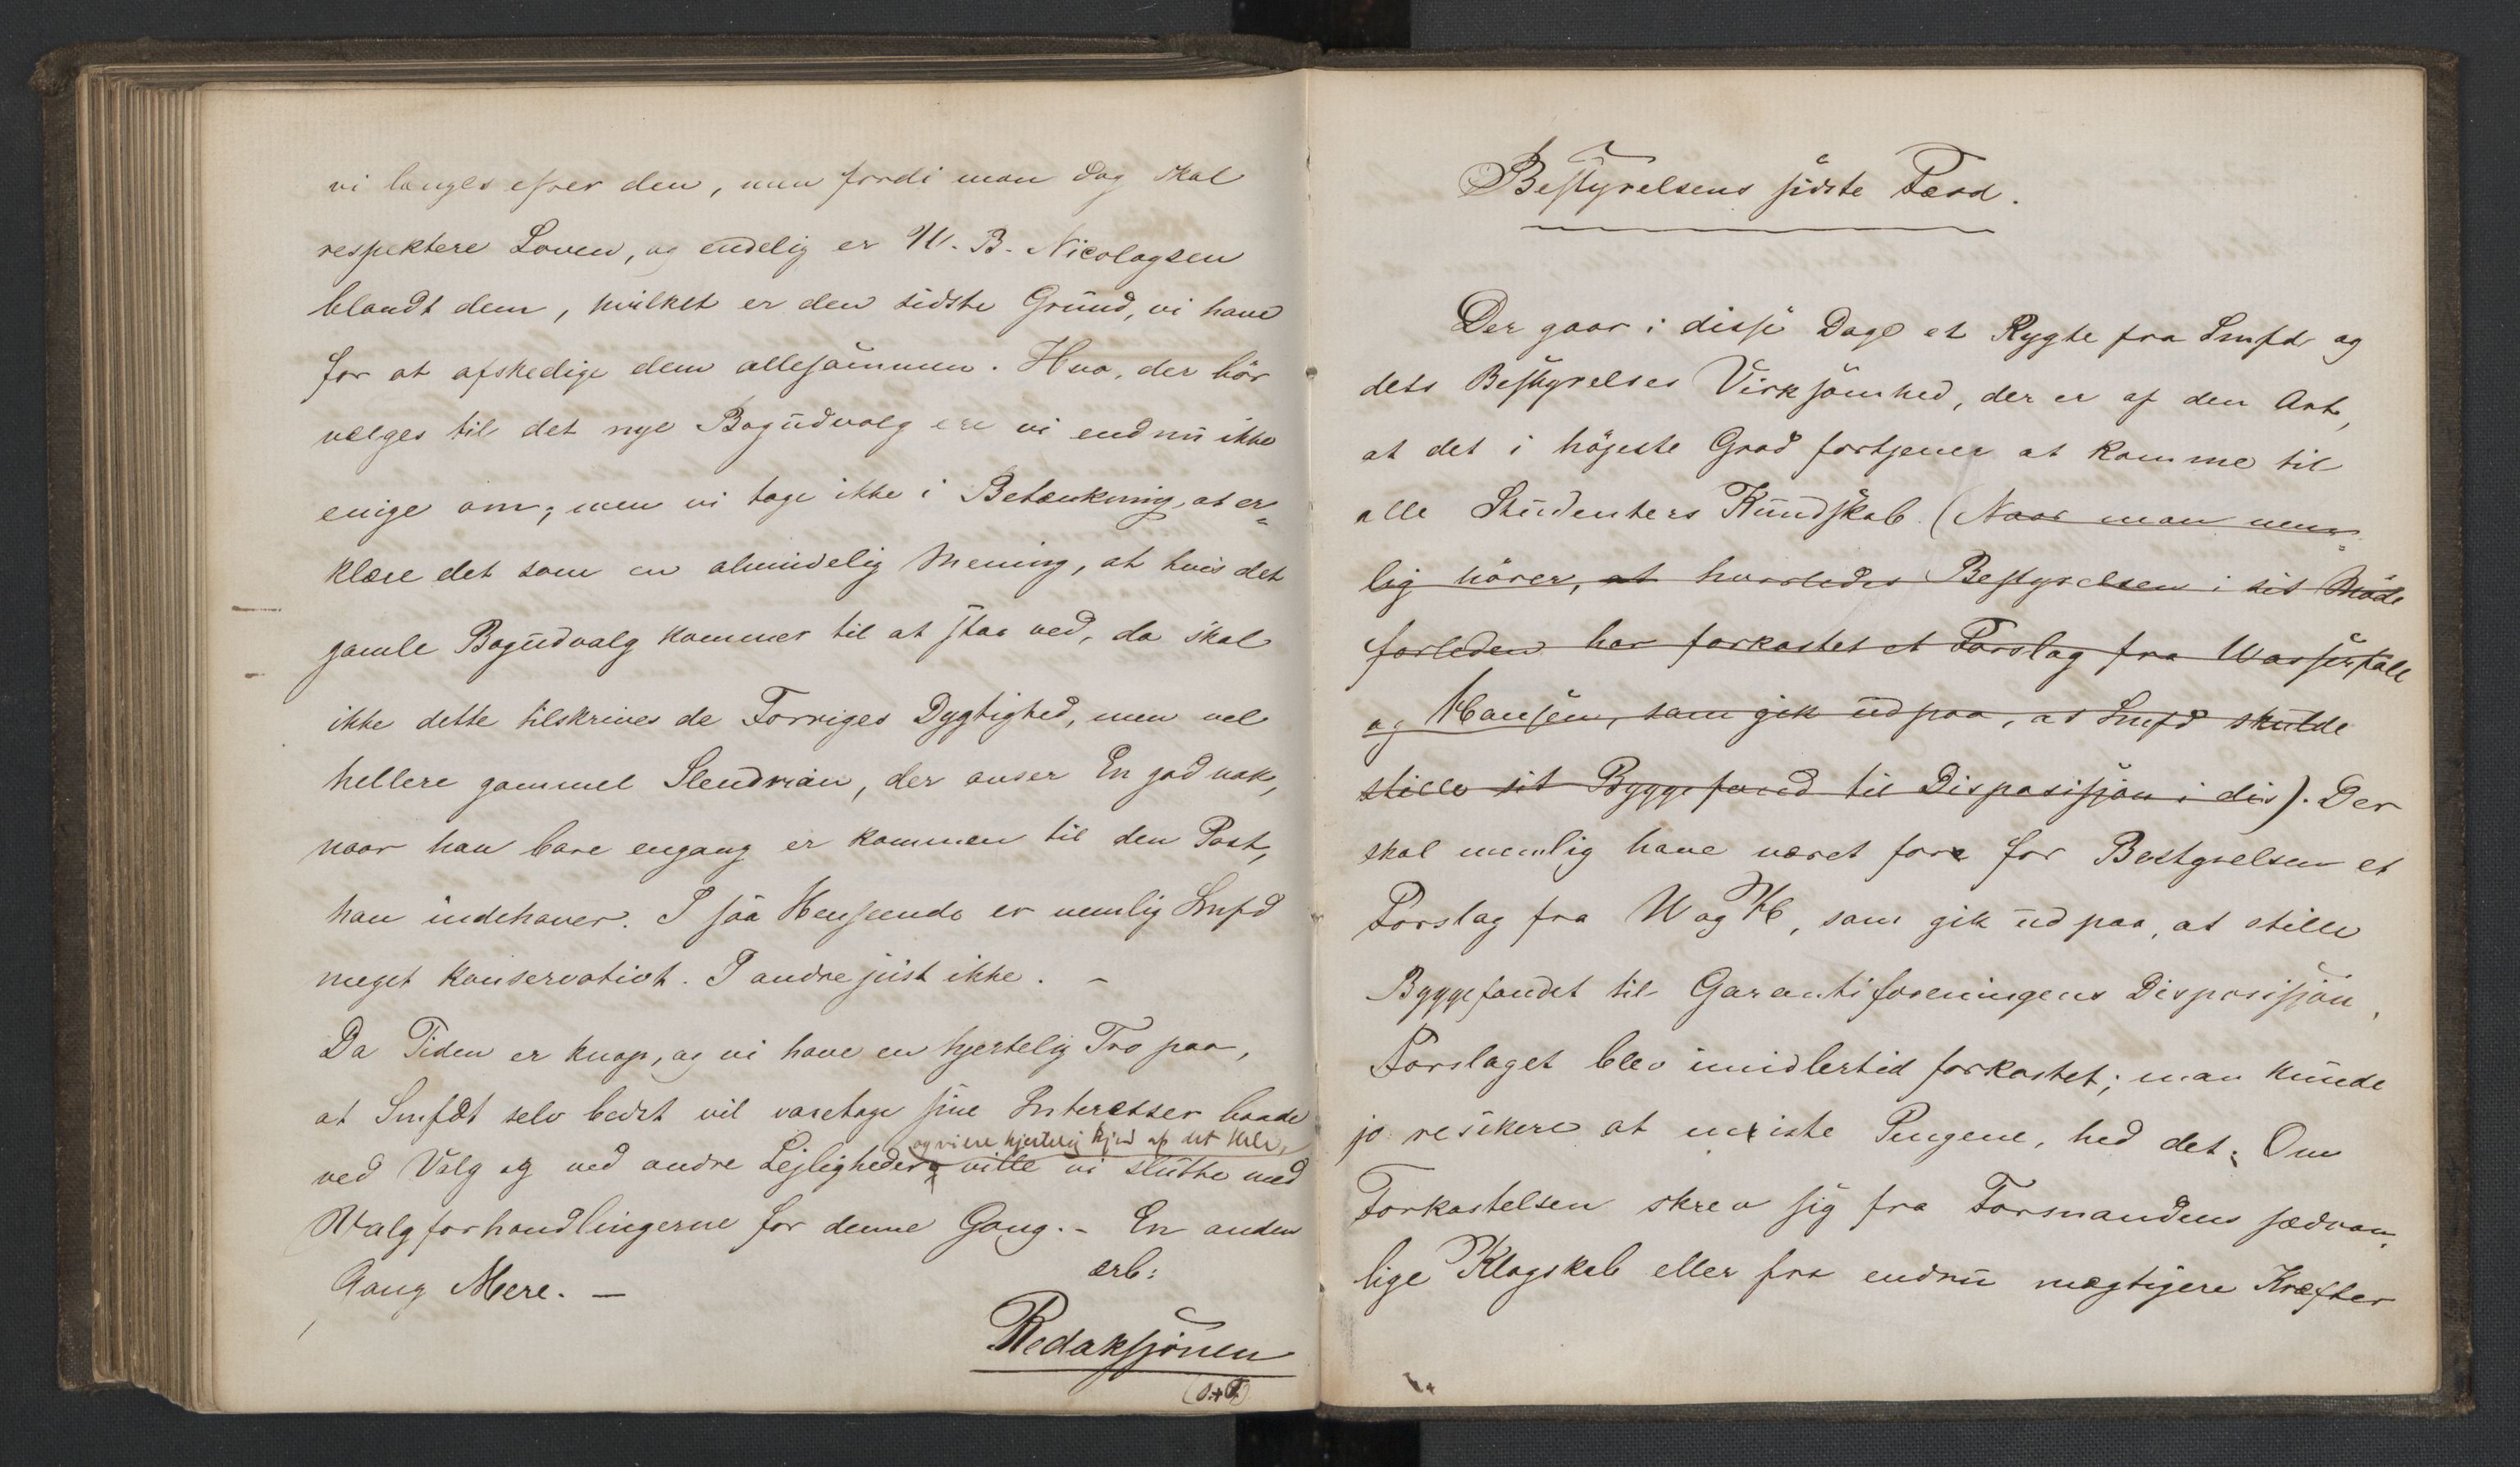 vi længes efter den, men fordi man dog skal
respektere Loven, og endelig er W. B. Nicolaysen
blandt dem, hvilket er den sidste Grund, vi have
for at afskedige dem allesammen. Hva, der bör
vælges til det nye Bogudvalg ere vi endnu ikke
enige om; men vi tage ikke i Betænkning, at er=
klære det som en almindelig Mening, at hvis det
gamle Bogudvalg kommer til at staa ved, da skal
ikke dette tilskrives de Forriges Dygtighed, men vel
hellere gammel Slendrian, der anser En god nok,
naar han bare engang er kommen til den Post,
han indehaver. I saa Henseende er nemlig Smfd
meget konservativt. I andre just ikke. –
Da Tiden er knap, og vi have en hjertelig Tro paa,
at Smfdt selv bedst vil varetage sine Interesser baade
og vi ere hjertelig kjed af det Hele,
ved Valg og ved andre Lejligheder, ville vi slutte med
Valgforhandlingerne for denne Gang. – En anden
Gang Mere. –
ærb:
Redaksjonen
(S+F)
Bestyrelsens sidste Færd.
Der gaar i disse Dage et Rygte fra Smfd og
dets Bestyrelses Virksomhed, der er af den Art,
at det i höjeste Grad fortjener at komme til
alle Studenters Kundskab. (Naar man nem=
lig hörer, at hvorledes Bestyrelsen i sit Möde
forleden har forkastet et Forslag fra Wasserfall
og Hansen, som gik ud paa, at Smfd skulde
stille sit Byggefond til Disposisjon i dis). Der
skal nemlig have været fore for Bestyrelsen et
Forslag fra W og H, som gik ud paa, at stille
Byggefondet til Garantiforeningens Disposisjon.
Forslaget blev imidlertid forkastet; man kunde
jo resikere at miste Pengene, hed det. Om
Forkastelsen skrev sig fra Formandens sædvan=
lige Klogskab eller fra endnu mægtigere Kræfter